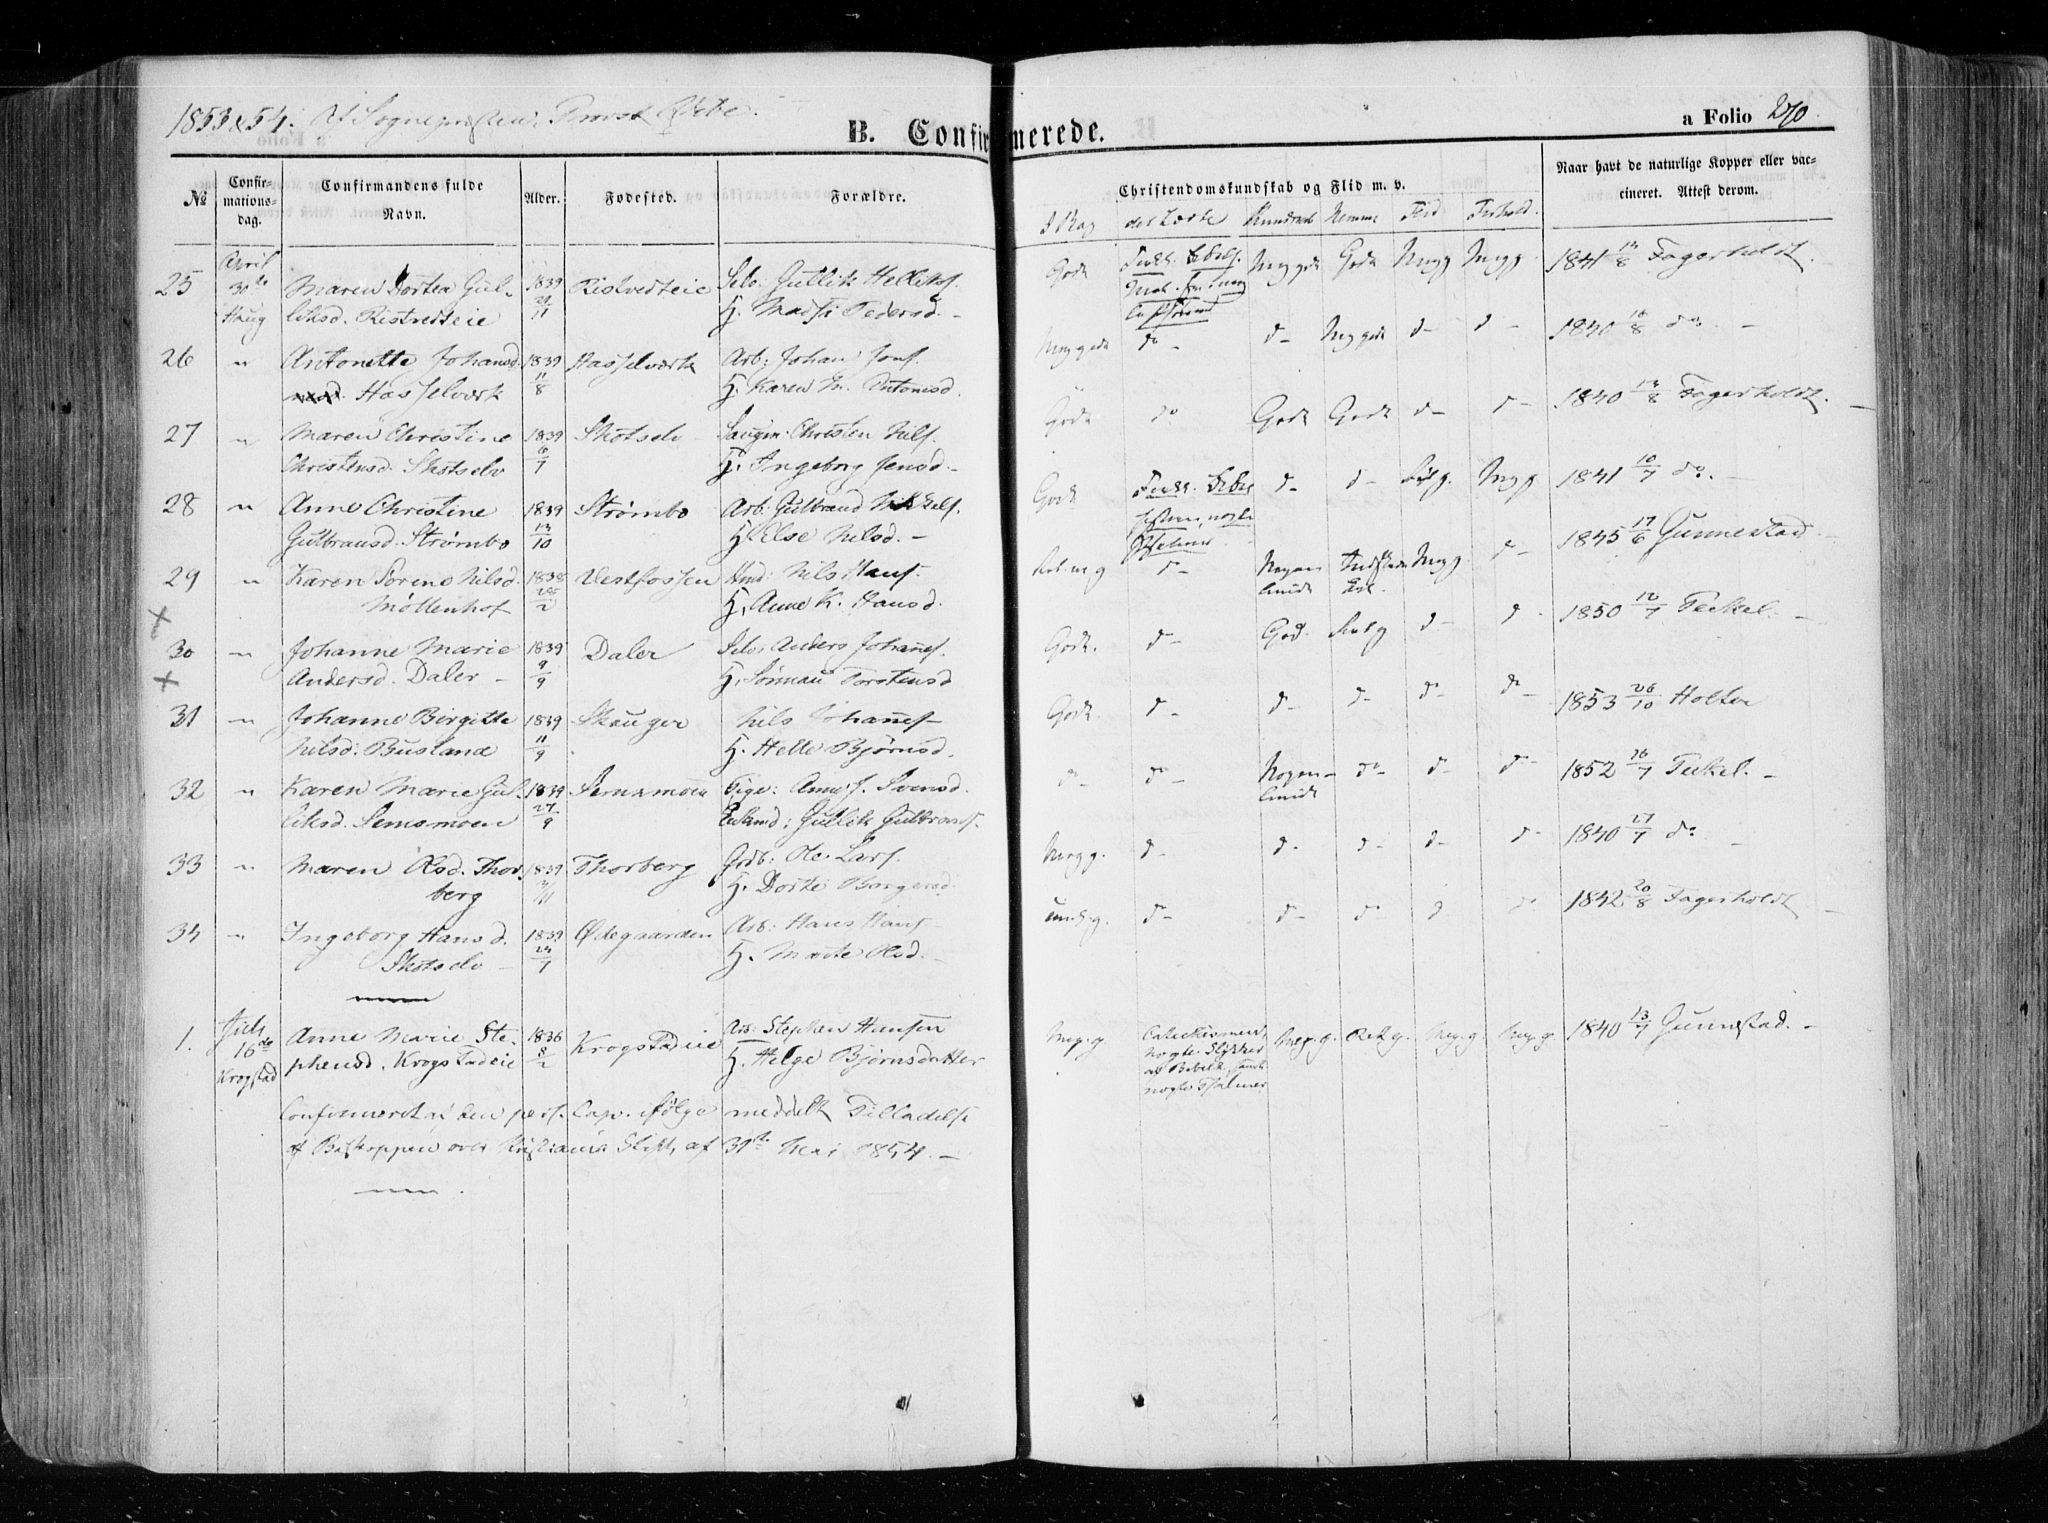 1853 & 54. Af Sognepresten, Provst
B. Confirmerede.
a Folio 270.
No
Confirmationsdag.
Confirmandens fulde Navn.
Alder.
Fødested.
Forældre.
Christendomskundskab og Flid m. v.
Naar havt de naturlige Kopper eller vaccineret. Attest derom.
I Bog
det Lærte
Kundskab
Nemme
Flid
Forhold.
25 April 30te Haug Maren Dortea Gulliksd. Ristvedteie 1839 29/11 Ristvedteie Selv: Gullik Helliks. H. Mathi Pedersd. Godt Megget Godt Megg Megg 1841 14/8 Fagerholdt.
26 " Antonette Johansd. Hasselværk 1839 11/8 Hasselværk Arb: Johan Jons. H. Karen M. Antonsd. Megget do - d- Megget d- d- 1840 16/8 do. -
27 " Maren Christine Christensd. Skotselv 1839 6/7 Skotselv Christen Nils. H. Ingeborg Jensd. Godt do Godt Godt d- d- 1840 14/8 Fagerholdt.
28 " Anne Christine Gulbransd. Strømbo 1839 14/10 Strømbo Arb: Gulbrand H. Else Nilsd. - Godt d- d- Megg 1841 10/7 do. -
29 " Karen Sorine Nilsd. Møllenhof 1838 2 Vestfossen Nils Hans. H. Anne K. Hansd. d- Nogenlunde Megg. d- 1845 17/6 Gunnestad -
30 " Johanne Marie Andersd. Daler - 1839 9/9 Daler Selv. Anders Johannes. H. Torstensd Godt. d- God. d- d- 1850 12/7 Teckel. -
31 " Johanne Birgitte Nilsd. Busland 1839 11/9 Skauger Nils Johannes- H. Helle Bjørnsd. Godt. d- d- d- d- d- 1853 26/10 Holter
32 " Karen Marie Gulliksd. Semsmoen 1839 27/9 Semsmoen Pige: Anne Svensd. Gullik Gulbrans. d- d- Nogenlunde d- d- d- 1852 16/7 Teckel. -
33 " Maren Olsd. Thorberg 1839 Thorberg Ole Lars. H. Dorte Borgersd. Megg. d- d- d- d- d- 1840 17/7 do -
34 " Ingeborg Hansd. Skotselv 1839 24/7 Ødegaarden Arb: Hans Hans- H. Marte Olsd. - d- d- d- d d 1842 20/8 Fagerholdt -
1. Juli 16de Krogstad Anne Marie Stephensd. Krogstadeie 1836 8/2 Krogstadeie Arb: Stephen Hansen H. Helge Bjørnsdatter Meg. g. Catechismen, nogle Stykker af Bibelh. samt nogle Psalmer. Meg. g. Ret g. Meg. g. Meg. g. 1840 13/7 Gunnestad. -
Confirmeret af den pers. Cap. ifølge meddelt Tilladelse
af Biskoppen over Christiania Stift, af 31te Mai 1854. -